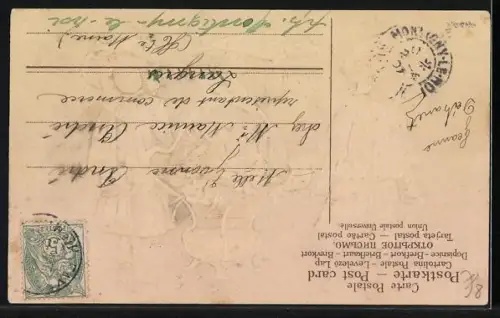 Carte Postale
Postkarte — Post card
Cartolina Postale — Levelező Lap
Dopisnice — Brefkort — Briefkaart — Brevkort
ОТКРЫТОЕ ПИСЬМО.
Tarjeta postal — Cartão postal
Union postale Universelle.
Jeanne
MONTIGNY-LE-ROI
Melle Yvonne André
chez Mr Maurice André
représentant de commerce
Langres
(Hte Marne)
Montigny-le-roi
5